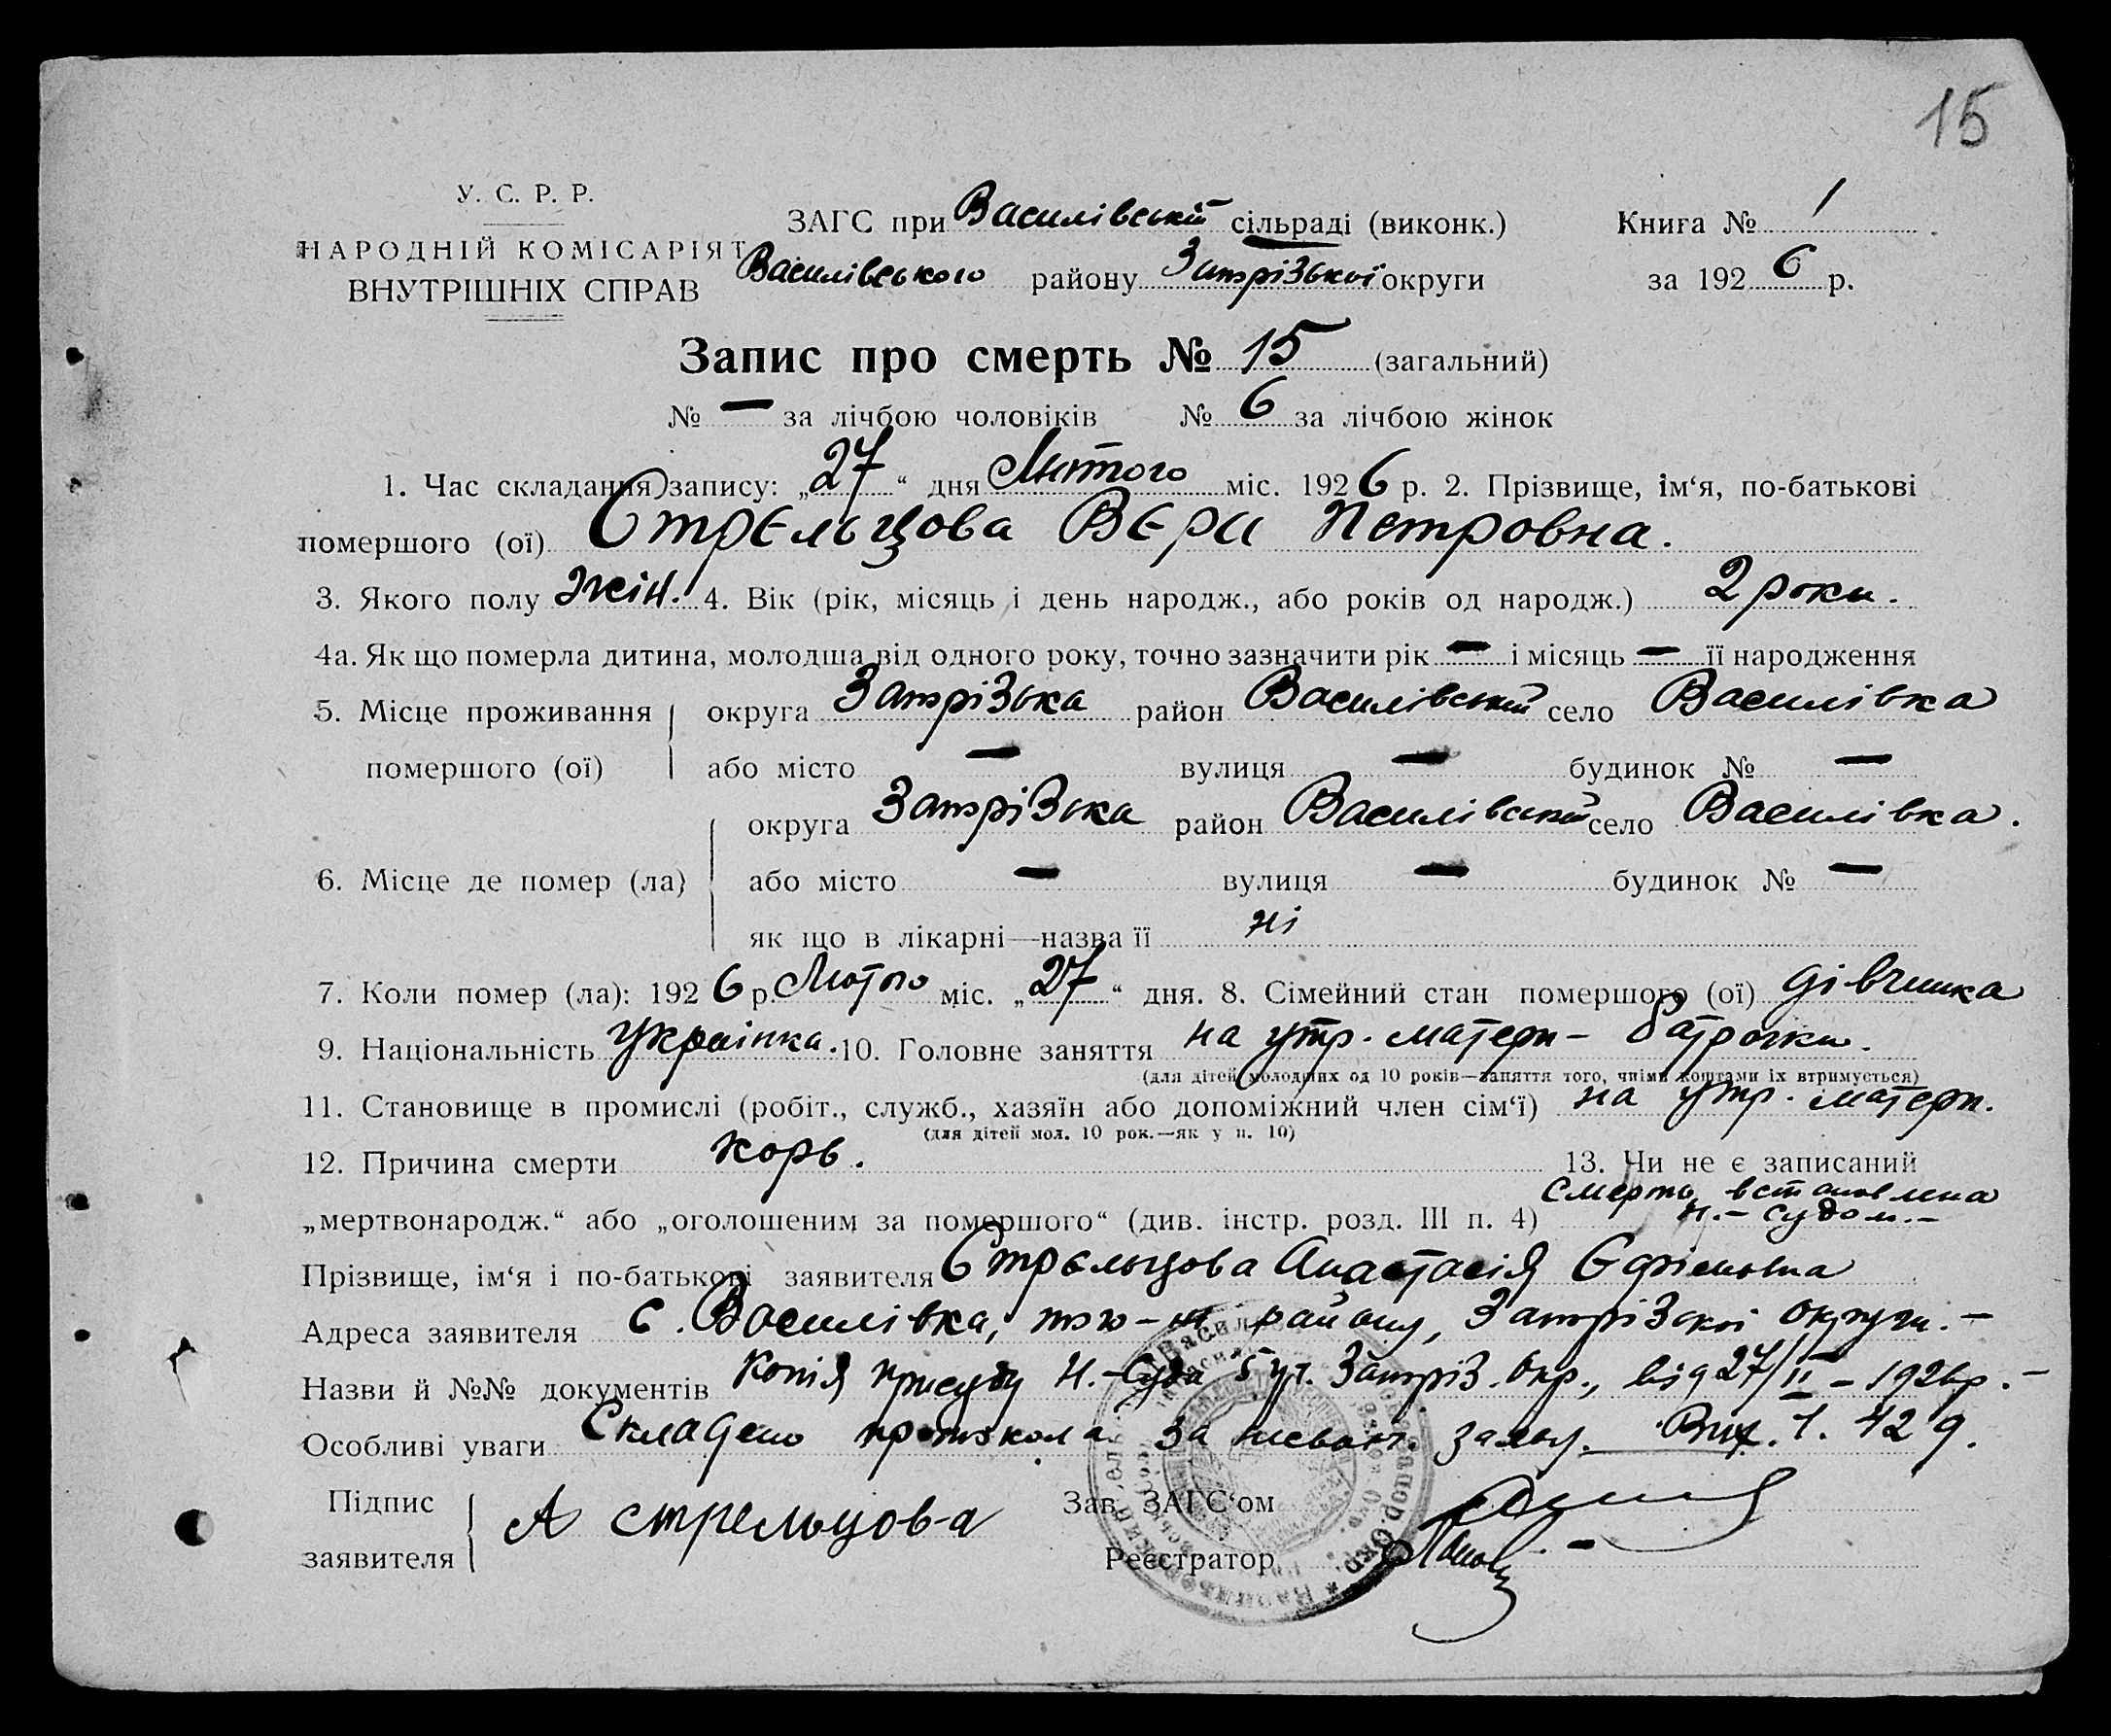 15
У. С. Р. Р.
НАРОДНІЙ КОМІСАРІЯТ
ВНУТРІШНІХ СПРАВ
ЗАГС при Василівській сільраді (виконк.) Книга № 1
Василівського району Запорізької округи за 1926 р.
Запис про смерть № 15 (загальний)
№ — за лічбою чоловіків № 6 за лічбою жінок
1. Час складання запису: „27“ дня Лютого міс. 1926 р. 2. Прізвище, ім‘я, по-батькові
помершого (ої) Стрєльцова Вєра Петровна.
3. Якого полу жін. 4. Вік (рік, місяць і день народж., або років од народж.) 2 роки.
4а. Як що померла дитина, молодша від одного року, точно зазначити рік — і місяць — її народження
5. Місце проживання округа Запорізька район Василівський село Василівка
помершого (ої) або місто — вулиця — будинок № —
округа Запорізька район Василівський село Василівка.
6. Місце де помер (ла) або місто — вулиця — будинок № —
як що в лікарні—назва її ні
7. Коли помер (ла): 1926 р. Лютого міс. „27“ дня. 8. Сімейний стан помершого (ої) дівчинка
9. Національність Українка. 10. Головне заняття на утр. матери - батрачки.
(для дітей молодших од 10 років—заняття того, чиїми коштами їх втримується)
11. Становище в промислі (робіт., служб., хазяїн або допоміжний член сім‘ї) на утр. матери.
(для дітей мол. 10 рок.—як у п. 10)
12. Причина смерти корь. 13. Чи не є записаний
Смерть встановлена
„мертвонародж.“ або „оголошеним за помершого“ (див. інстр. розд. III п. 4) н.-судом.-
Прізвище, ім‘я і по-батькові заявителя Стрєльцова Анастасія Єфімовна
Адреса заявителя с. Василівка, того-ж району, Запорізької округи.-
Назви й №№ документів Копія присуду Н.-Суда 5 уч. Запоріз. Окр., від 27/II-1926р.-
Особливі уваги Складено протокола за заяву. 1. 42 9.
Підпис Зав. ЗАГС‘ом
заявителя А стрельцова
Реєстратор